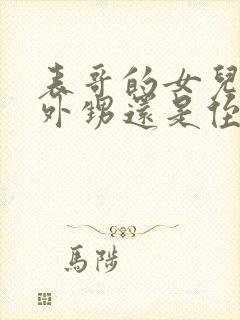 表哥的女兒
外甥還是侄
馬陟